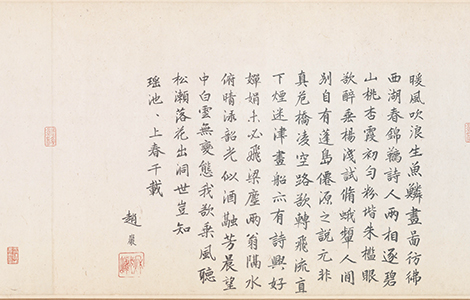 暖風吹浪生魚鱗畫啚彷彿
西湖春錦韉詩人兩相逐碧
山桃杏霞初勻粉堵朱檻眼
欲醉垂楊淺試脩蛾顰人間
別自有蓬島僊源之說元非
真危橋凌空路欲轉飛流直
下煙迷津畫船亦有詩興好
嬋娟未必飛梁塵兩翁隔水
俯晴淥韶光似酒融芳晨望
中白雲無變態我欲乘風聽
松瀨落花出洞世豈知
瑤池〻上春千載
趙巖